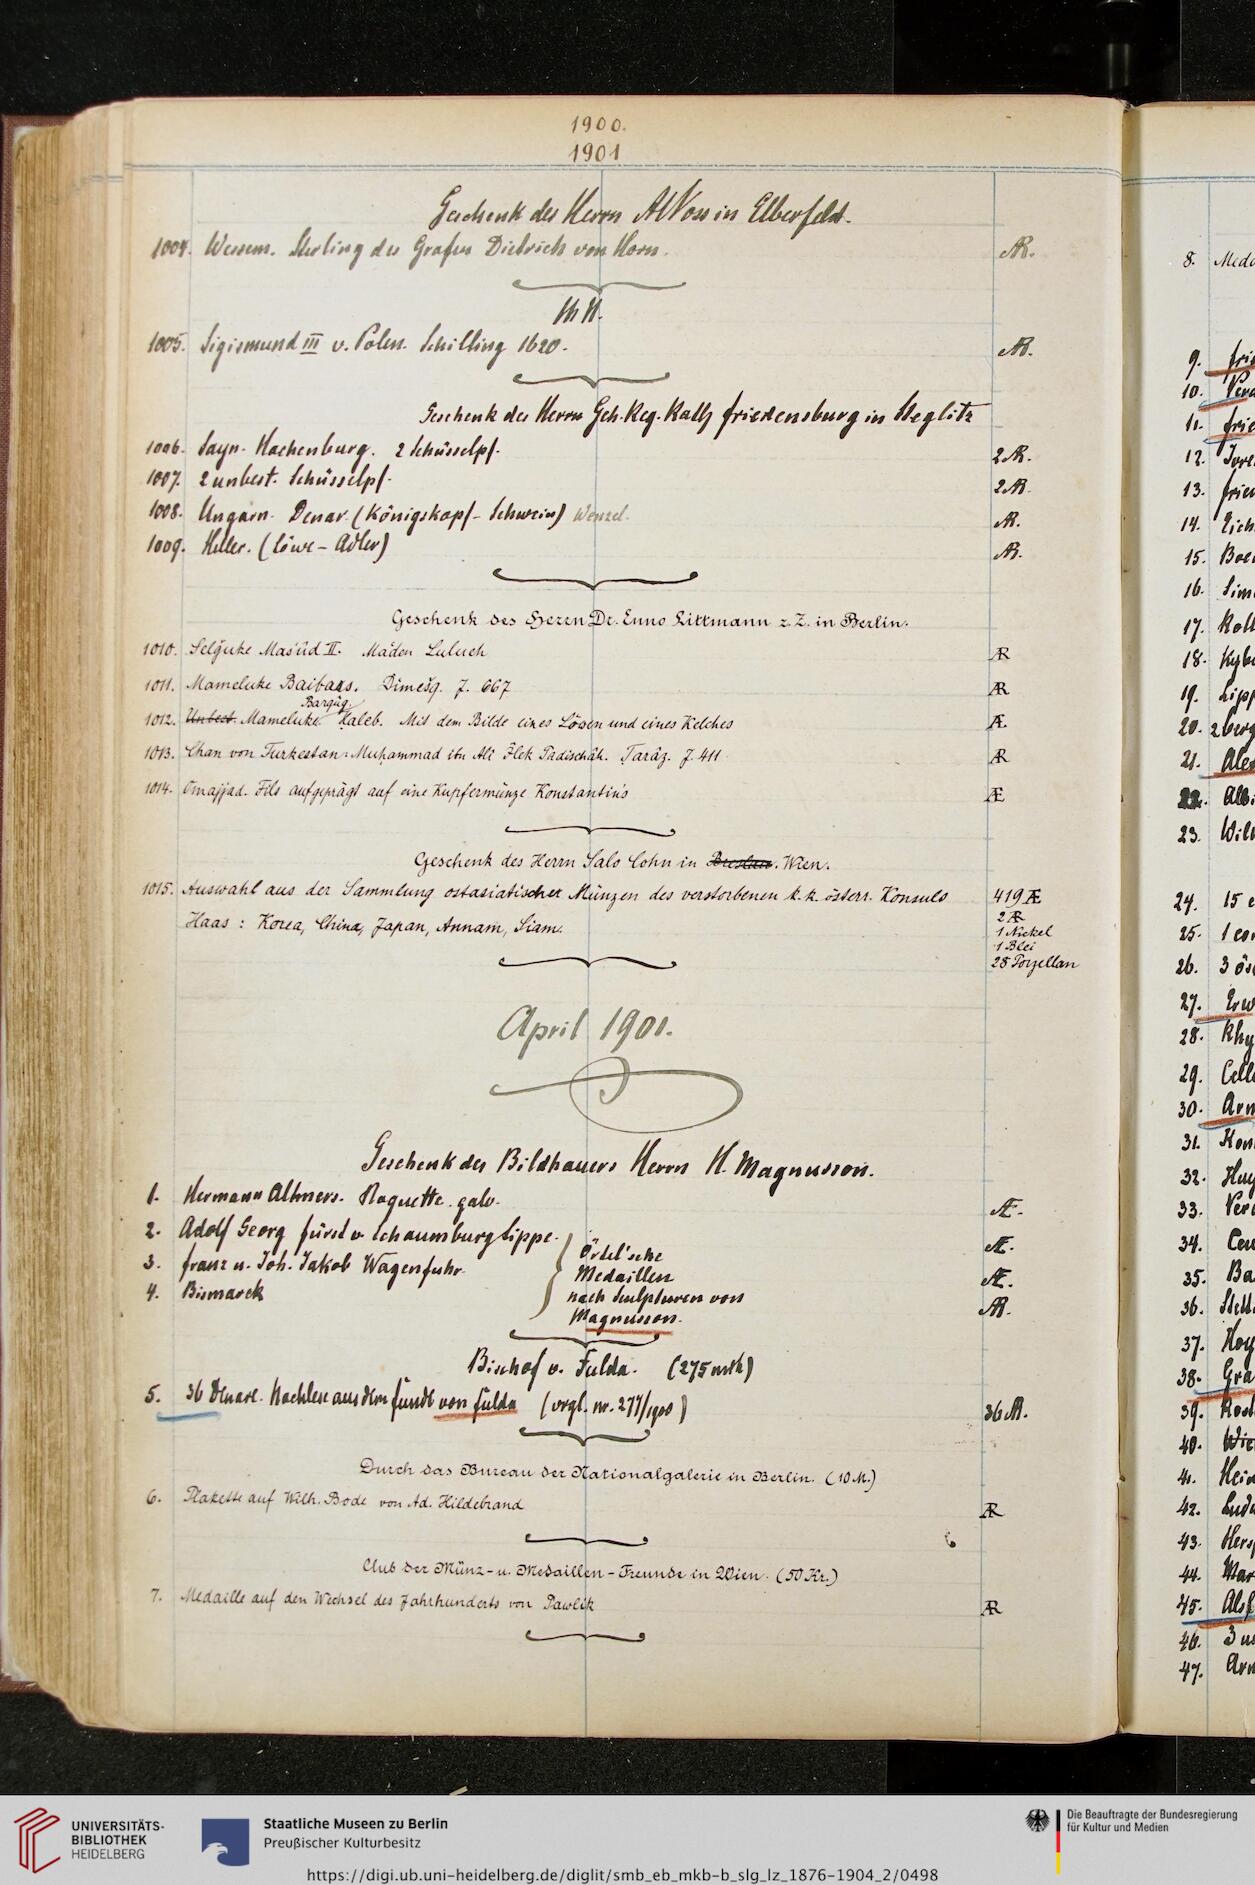 1900.
1901
Geschenk des Herrn A. Voss in Elberfeld.
1004. Wessem. Sterling des Grafen Dietrich von Horn. AR.
1005. Sigismund III v. Polen. Schilling 1620. AR.
Geschenk des Herrn Geh. Reg. Rath Friedensburg in Steglitz
1006. Sayn-Hachenburg. 2 Schüsselpf. 2 AR.
1007. 2 unbest. Schüsselpf. 2 AR.
1008. Ungarn. Denar. (Königskopf - Schwein) Wenzel. AR.
1009. Heller. (Löwe - Adler) AR.
Geschenk des Herrn Dr. Enno Littmann z. Z. in Berlin.
1010. Selǧuke Masʿûd II. Maʿden Lulueh AR
1011. Mameluke Baibars. Dimešq. J. 667 AR
Barqûq
1012. Unbest. Mameluke. Ḥaleb. Mit dem Bilde eines Löwen und eines Kelches Æ
1013. Chan von Turkestan: Muḥammad ibn Ali Ilek Pâdischâh. Ṭarâz. J. 411 AR
1014. Omajjad. Fils aufgeprägt auf eine Kupfermünze Konstantin's Æ
Geschenk des Herrn Salo Cohn in Breslau. Wien.
1015. Auswahl aus der Sammlung ostasiatischer Münzen des verstorbenen k. k. österr. Konsuls 419 Æ
Haas : Korea, China, Japan, Annam, Siam. 2 AR
1 Nickel
1 Blei
28 Porzellan
April 1901.
Geschenk des Bildhauers Herrn H. Magnusson.
1. Hermann Allmers. Plaquette. galv. Æ.
2. Adolf Georg Fürst v. Schaumburg Lippe. Æ.
3. Franz u. Joh. Jakob Wagenfuhr Æ.
4. Bismarck AR.
Örtel'sche
Medaillen
nach Sculpturen von
Magnusson.
Bischof v. Fulda. (275 mrk)
5. 36 Denare. Nachlese aus dem Funde von Fulda (vrgl. nr. 277/1900) 36 AR.
Durch das Bureau der Nationalgalerie in Berlin. (10 M.)
6. Plakette auf Wilh. Bode von Ad. Hildebrand AR
Club der Münz- u. Medaillen-Freunde in Wien. (50 Kr.)
7. Medaille auf den Wechsel des Jahrhunderts von Pawlik AR
8. Meda
9. Frie
10.
11. Frie
12.
13. Frie
14. Eich
15.
16. Sim
17.
18. Kyb
19. Lipp
20. 2 berg
21. Ale
22. Alb
23. Wil
24. 15
25. 1
26. 3 ös
27.
28. Rhy
29. Cell
30. Arn
31.
32.
33.
34.
35. Ba
36.
37. Hoy
38. Gra
39.
40.
41. Hei
42.
43. Hers
44.
45. Als
46. 3
47. Arn
UNIVERSITÄTS-
BIBLIOTHEK
HEIDELBERG
Staatliche Museen zu Berlin
Preußischer Kulturbesitz
Die Beauftragte der Bundesregierung
für Kultur und Medien
https://digi.ub.uni-heidelberg.de/diglit/smb_eb_mkb-b_slg_lz_1876-1904_2/0498